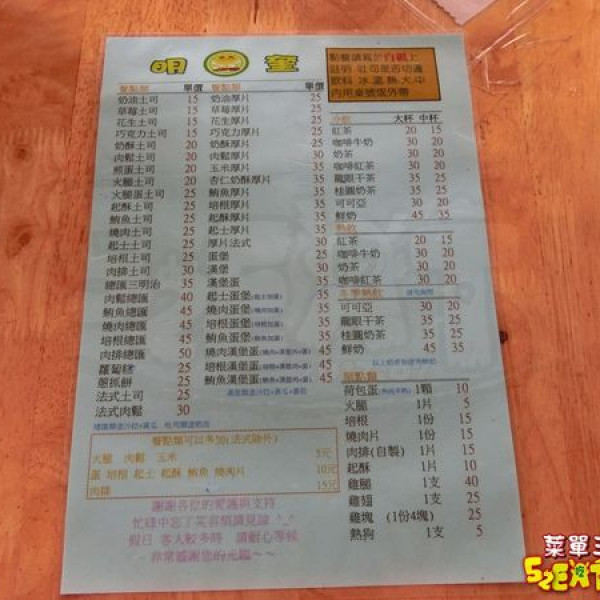 明 奎
點餐請寫於白碟上
註明:吐司是否切邊
飲料 冰.溫.熱.大.中
內用桌號或外帶
餐點類 單價
奶油土司 15
草莓土司 15
花生土司 15
巧克力土司 15
奶酥土司 20
肉鬆土司 20
煎蛋土司 20
火腿土司 20
火腿蛋土司 25
起酥土司 25
鮪魚土司 25
燒肉土司 25
起士土司 25
培根土司 25
肉排土司 30
總匯三明治 35
肉鬆總匯 40
鮪魚總匯 45
燒肉總匯 45
培根總匯 45
肉排總匯 50
蘿蔔糕 25
蔥抓餅 25
法式土司 25
法式肉鬆 30
餐點類 單價
奶油厚片 25
草莓厚片 25
花生厚片 25
巧克力厚片 25
奶酥厚片 25
肉鬆厚片 30
玉米厚片 35
杏仁奶酥厚片 35
鮪魚厚片 35
培根厚片 35
起酥厚片 35
起士厚片 35
厚片法式 30
蛋堡 25
漢堡 30
漢堡蛋 35
起士蛋堡 35
燒肉蛋堡 35
培根蛋堡 35
鮪魚蛋堡 35
燒肉漢堡蛋(燒肉+漢堡肉+蛋) 45
培根漢堡蛋(培根+漢堡肉+蛋) 45
鮪魚漢堡蛋(鮪魚+漢堡肉+蛋) 45
餐點類可以多加(法式除外)
火腿 肉鬆 玉米 5元
蛋 培根 起士 起酥 鮪魚 燒肉片 10元
肉排 15元
謝謝各位的愛護與支持
忙碌中忘了笑容煩請見諒 ^_^
假日 客人較多時 請耐心等候
~ ~ 非常感謝您的光臨~ ~
冷飲 大杯 中杯
紅茶 20 15
咖啡牛奶 30 20
奶茶 30 20
咖啡紅茶 30 20
龍眼干茶 35 25
桂圓奶茶 35 25
可可亞 30 20
鮮奶 45 35
熱飲
紅茶 20 15
咖啡牛奶 30 20
奶茶 30 20
咖啡紅茶 30 20
冬季熱飲
可可亞 30 20
龍眼干茶 35 25
桂圓奶茶 35 25
鮮奶 45 35
單點類
荷包蛋 1顆 10
火腿 1片 5
培根 1份 15
燒肉片 1份 15
肉排(自製) 1片 15
起酥 1片 10
雞腿 1支 40
雞翅 1支 25
雞塊 (1份4塊) 25
熱狗 1支 5
菜單王
SZEAT